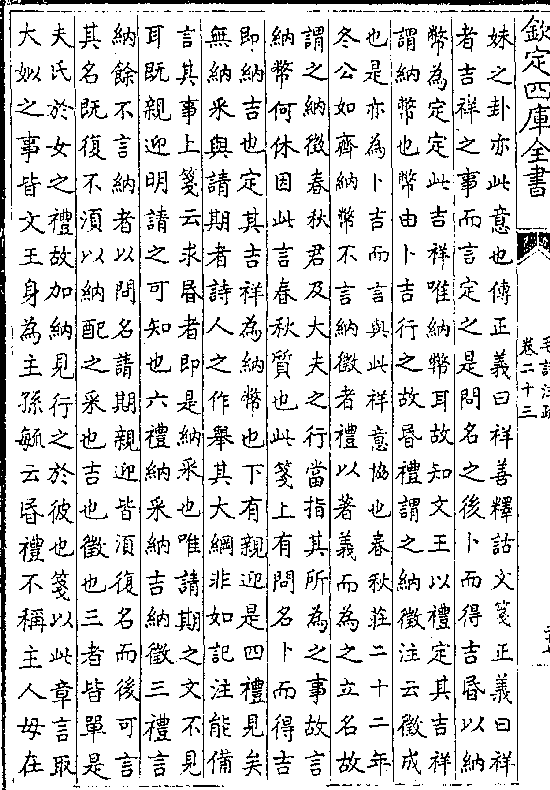 欽定四庫全書
毛詩注疏
卷二十三
妹之卦亦此意也傳正義曰祥善釋詁文箋正義曰祥
者吉祥之事而言定之是問名之後卜而得吉昏以納
幣為定定此吉祥唯納幣耳故知文王以禮定其吉祥
謂納幣也幣由卜吉行之故昏禮謂之納徵注云徵成
也是亦為卜吉而言與此祥意協也春秋莊二十二年
冬公如齊納幣不言納徵者禮以著義而為之立名故
謂之納徵春秋君及大夫之行當指其所為之事故言
納幣何休因此言春秋質也此箋上有問名卜而得吉
即納吉也定其吉祥為納幣也下有親迎是四禮見矣
無納采與請期者詩人之作舉其大綱非如記注能備
言其事上箋云求昏者即是納采也唯請期之文不見
耳既親迎明請之可知也六禮納采納吉納徵三禮言
納餘不言納者以問名請期親迎皆須復名而後可言
其名既復不須以納配之采也吉也徵也三者皆單是
夫氏於女之禮故加納見行之於彼也箋以此章言取
大姒之事皆文王身為主孫毓云昏禮不稱主人母在